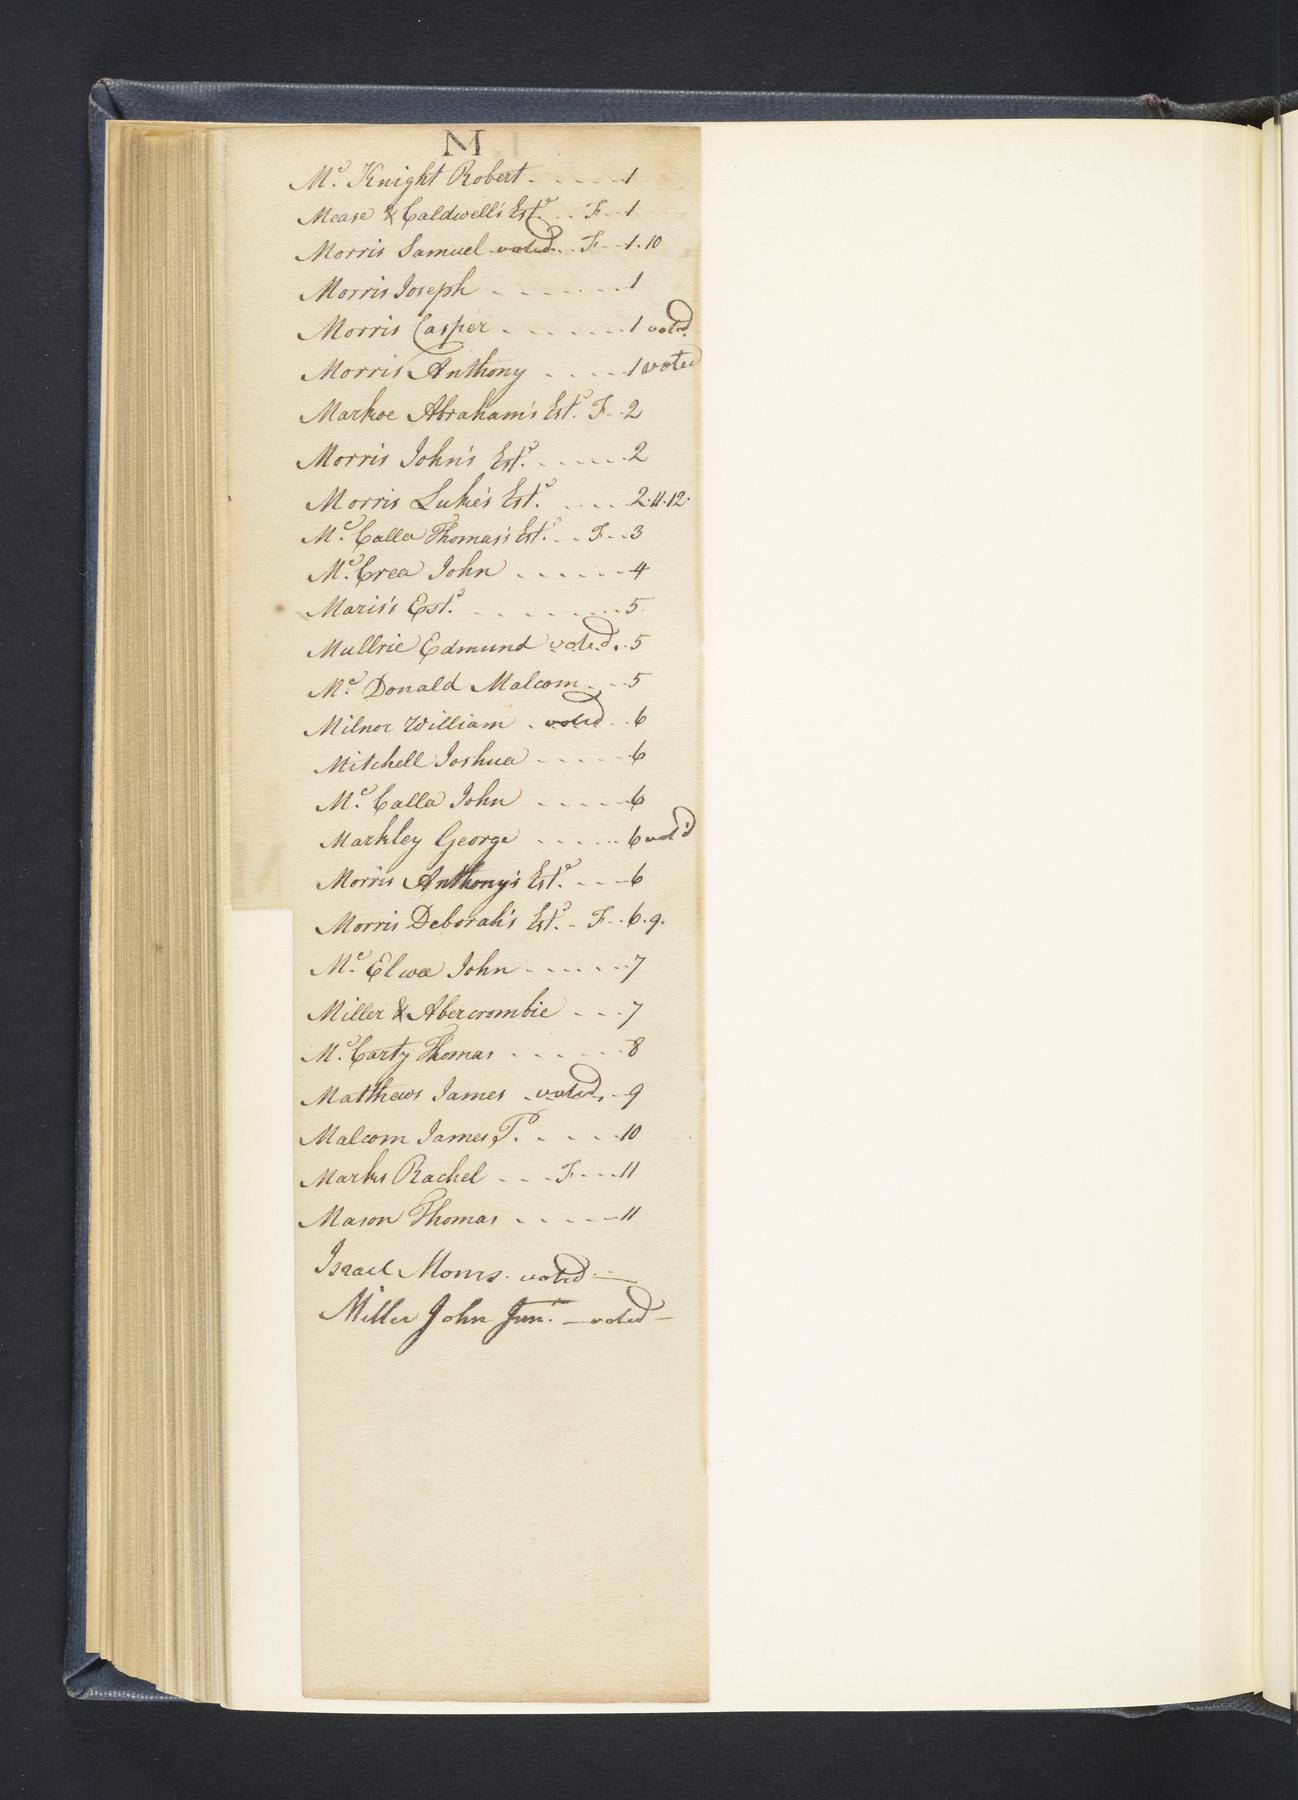 M
Mc. Knight Robert - - - - - 1
Mease & Caldwell's Este. - - F - - 1
Morris Samuel voted - - F - - 1.10
Morris Joseph - - - - - - 1
Morris Casper - - - - - - 1 voted
Morris Anthony - - - - 1 voted
Markoe Abraham's Este. F - - 2
Morris John's Este. - - - - - 2
Morris Luke's Este. - - - - 2.11.12.
Mc. Calla Thomas's Este. - - F - - 3
Mc. Crea John - - - - - - 4
Maris's Este. - - - - - - - 5
Mullrie Edmund voted - - 5
Mc. Donald Malcom - - - 5
Milnor William - voted - - 6
Mitchell Joshua - - - - - 6
Mc. Calla John - - - - - 6
Markley George - - - - - - 6 voted
Morris Anthony's Este. - - - 6
Morris Deborah's Este. - F - - 6.9.
Mc. Elwee John - - - - - - 7
Miller & Abercrombie - - - 7
Mc. Carty Thomas - - - - - - 8
Matthews James - voted - - 9
Malcom James P. - - - - 10
Marks Rachel - - - F - - - 11
Mason Thomas - - - - - 11
Israel Morris - voted —
Miller John Junr. — voted —